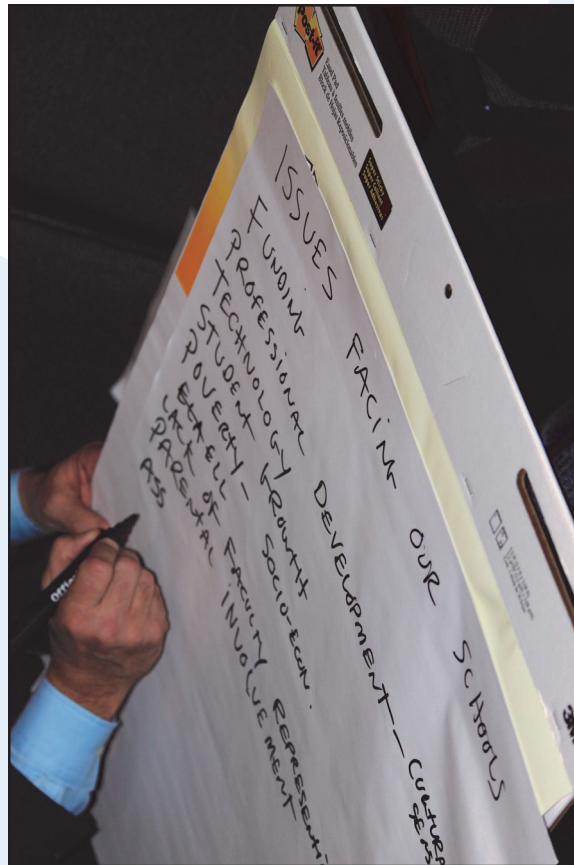 Post-it
Easel Pad
ISSUES FACING OUR SCHOOLS
FUNDING
PROFESSIONAL DEVELOPMENT — CULTURA
TECHNOLOGY
STUDENT GROWTH
POVERTY - SOCIO-ECON.
LACK OF FACULTY REPRESENT
PARENTAL INVOLVEMENT
ASS
Offic
3M